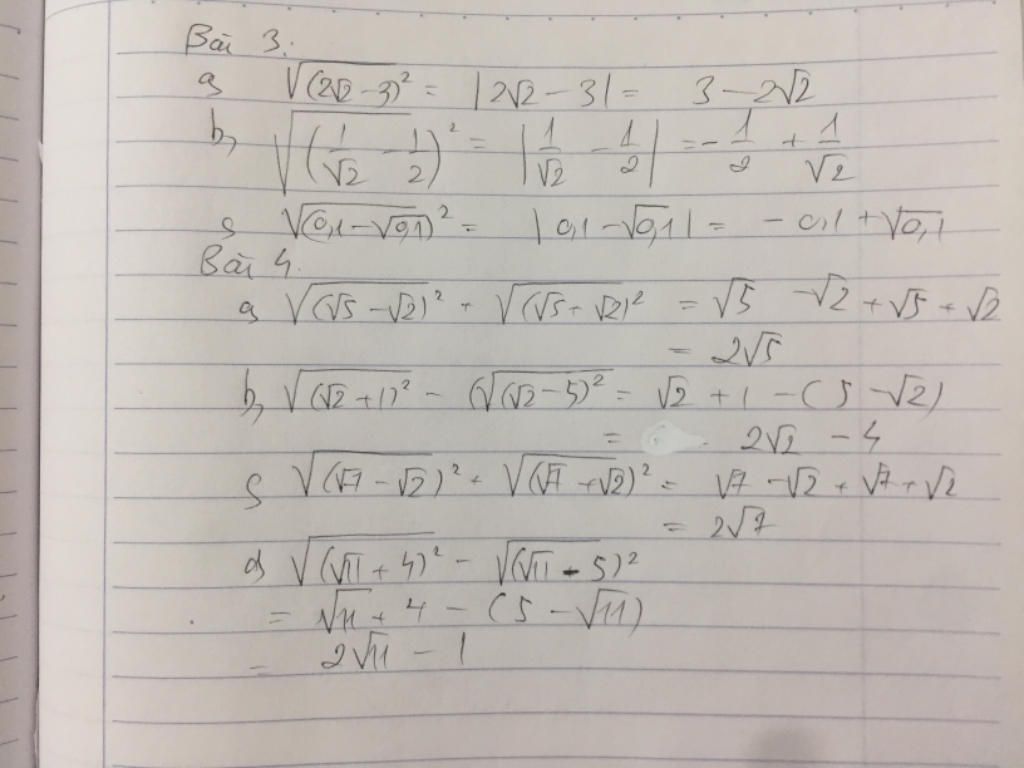 Bài 3.
a) √(2√2 - 3)² = |2√2 - 3| = 3 - 2√2
b, √(1/√2 - 1/2)² = |1/√2 - 1/2| = - 1/2 + 1/√2
c) √(0,1 - √0,1)² = |0,1 - √0,1| = - 0,1 + √0,1
Bài 4.
a) √(√5 - √2)² + √(√5 + √2)² = √5 - √2 + √5 + √2
= 2√5
b, √(√2 + 1)² - (√(√2 - 5)² = √2 + 1 - (5 - √2)
= 2√2 - 4
c) √(√7 - √2)² + √(√7 + √2)² = √7 - √2 + √7 + √2
= 2√7
d) √(√11 + 4)² - √(√11 - 5)²
= √11 + 4 - (5 - √11)
= 2√11 - 1